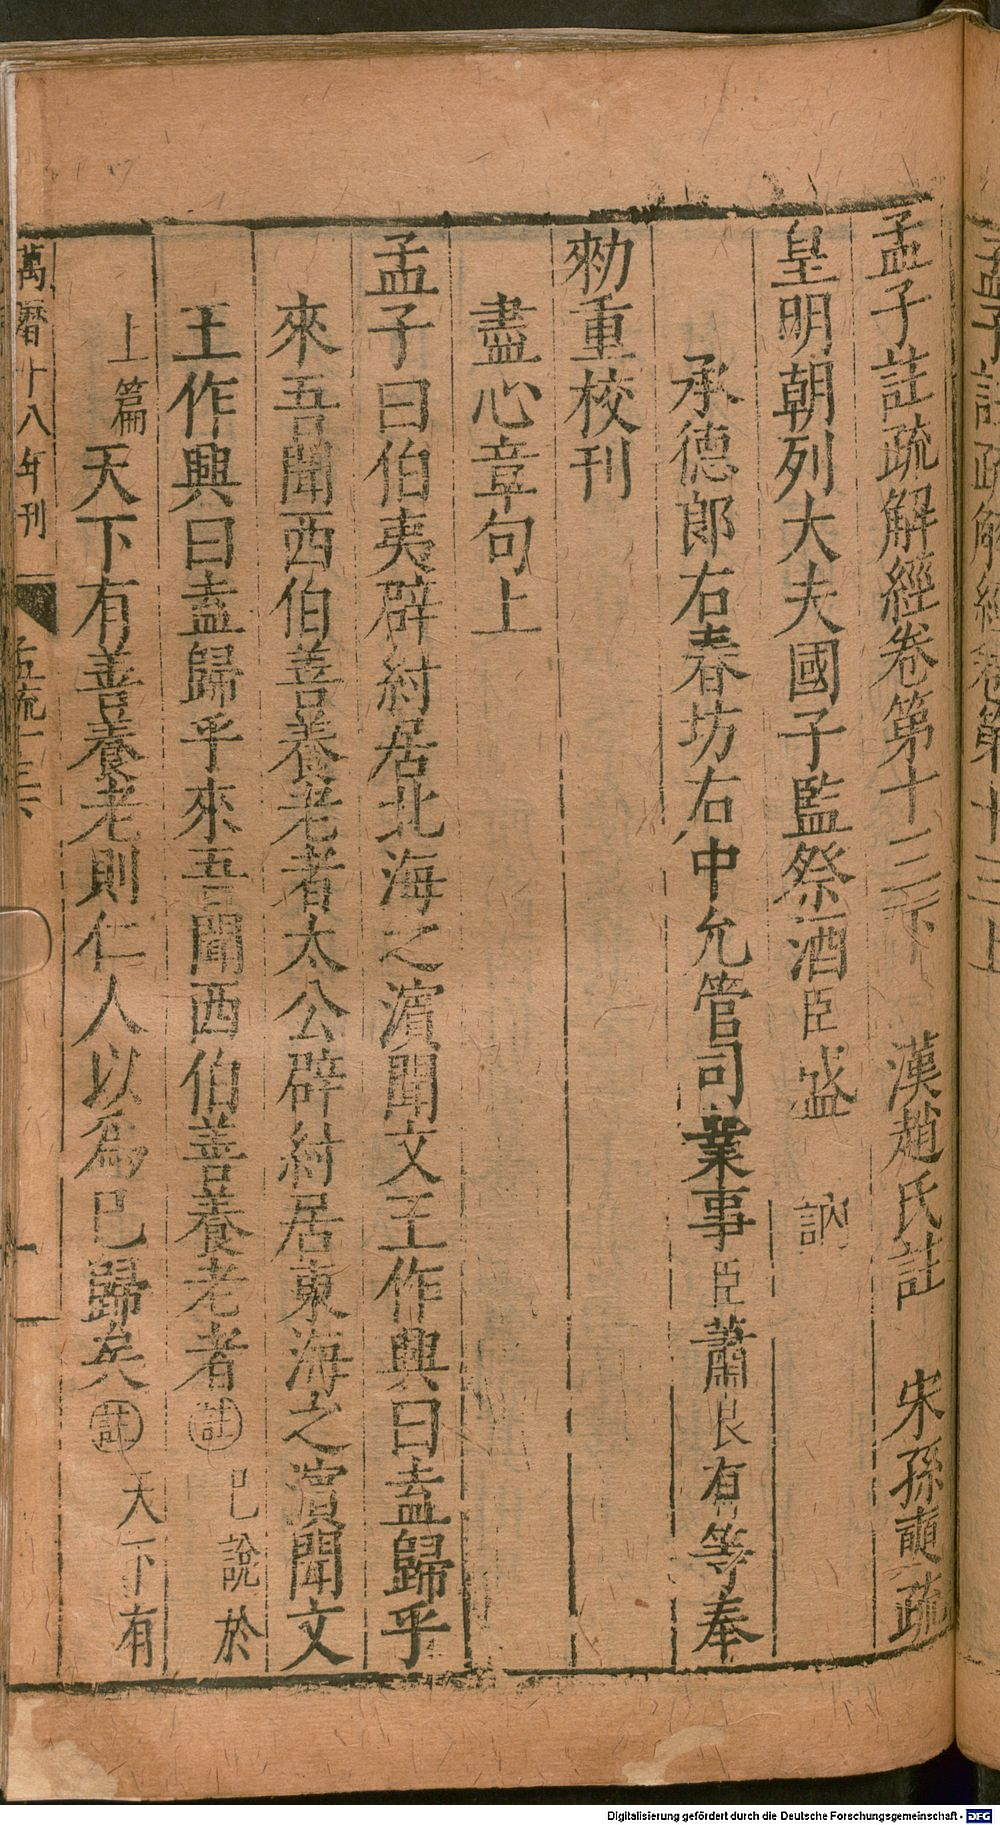 孟子註疏解經卷第十三下 漢趙氏註 宋孫奭疏
皇明朝列大夫國子監祭酒臣盛 訥
承德郎右春坊右中允管司業事臣蕭良有等奉
勑重校刊
盡心章句上
孟子曰伯夷辟紂居北海之濱聞文王作興曰盍歸乎
來吾聞西伯善養老者太公辟紂居東海之濱聞文
王作興曰盍歸乎來吾聞西伯善養老者註已說於
上篇天下有善養老則仁人以爲已歸矣註天下有
萬曆十八年刊 孟疏十三下 一
孟子註疏解經卷第十三上
Digitalisierung gefördert durch die Deutsche Forschungsgemeinschaft - DFG